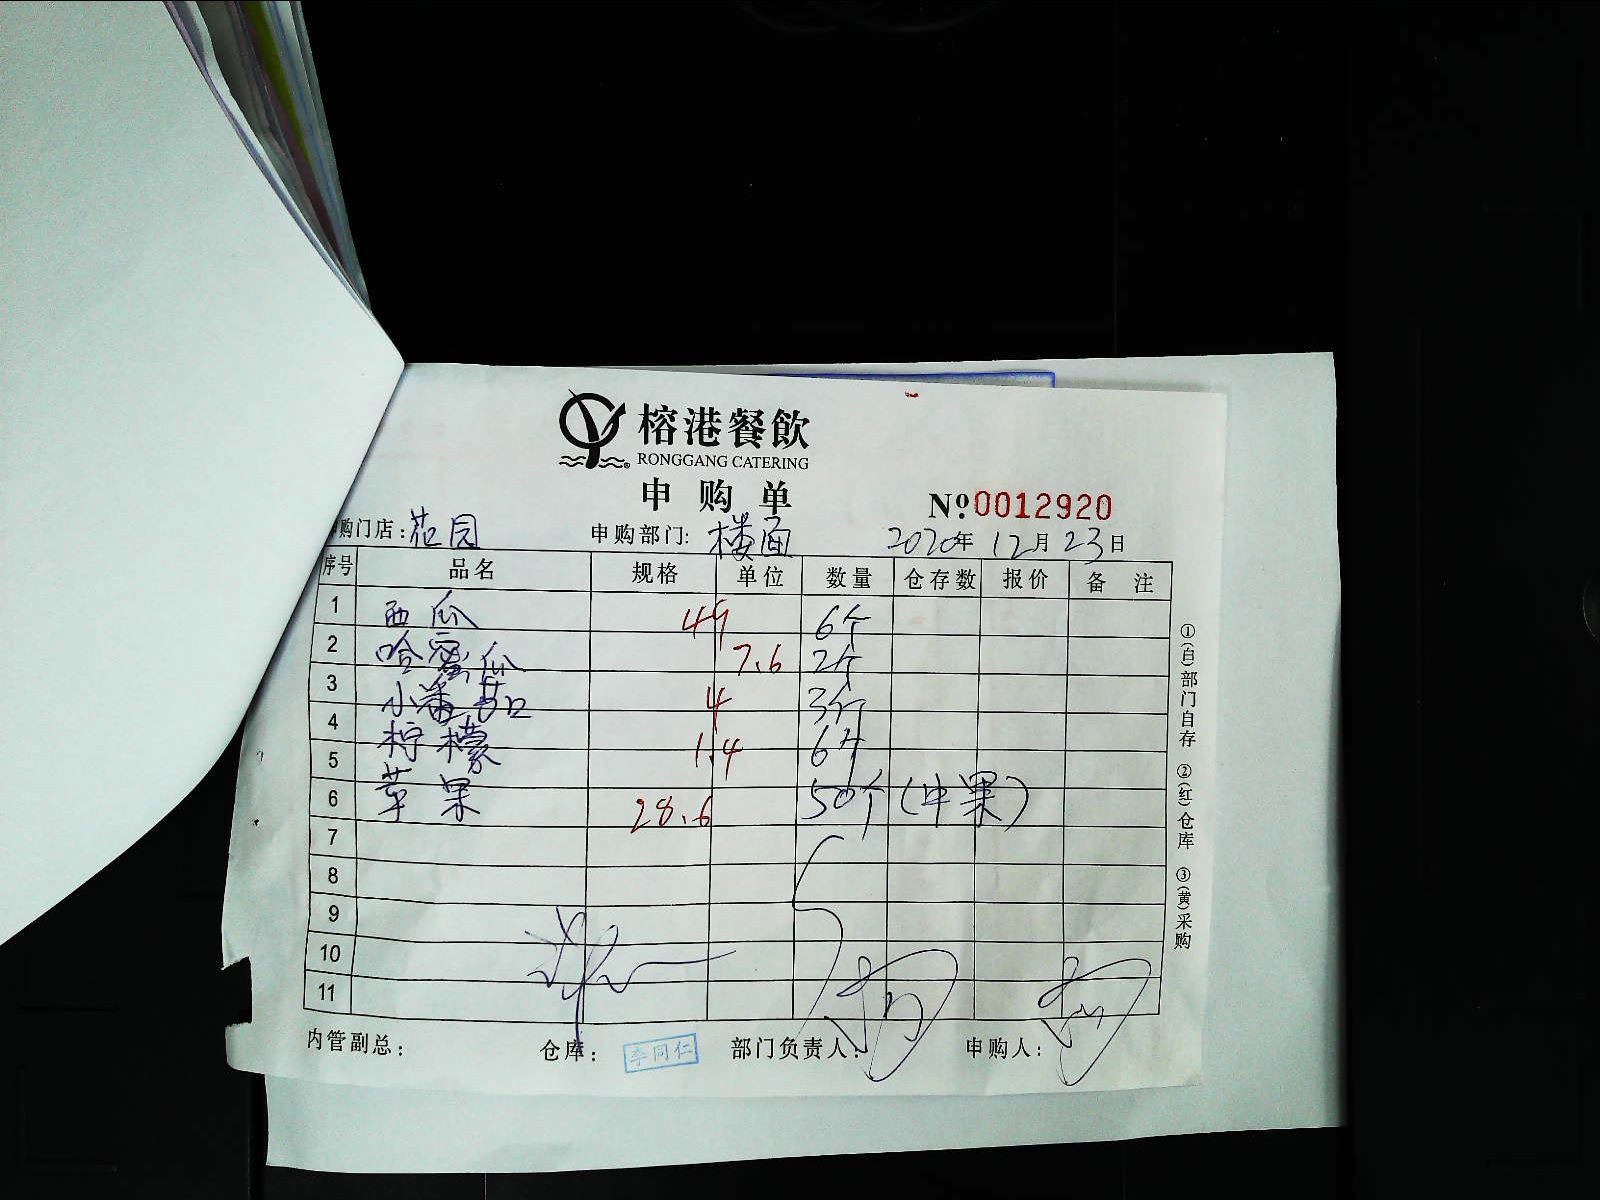 榕港餐飲
RONGGANG CATERING
申购单
№0012920
购门店：花园 申购部门：楼面 2020年12月23日
序号 品名 规格 单位 数量 仓存数 报价 备注
1 西瓜 49 6个
2 哈蜜瓜 7.6 2个
3 小番茄 4 3斤
4 柠檬 1.4 6个
5 苹果 28.6 50个（中果）
6
7
8
9
10
11
内管副总： 仓库： 李同仁 部门负责人： 申购人：
①（自）部门自存 ②（红）仓库 ③（黄）采购